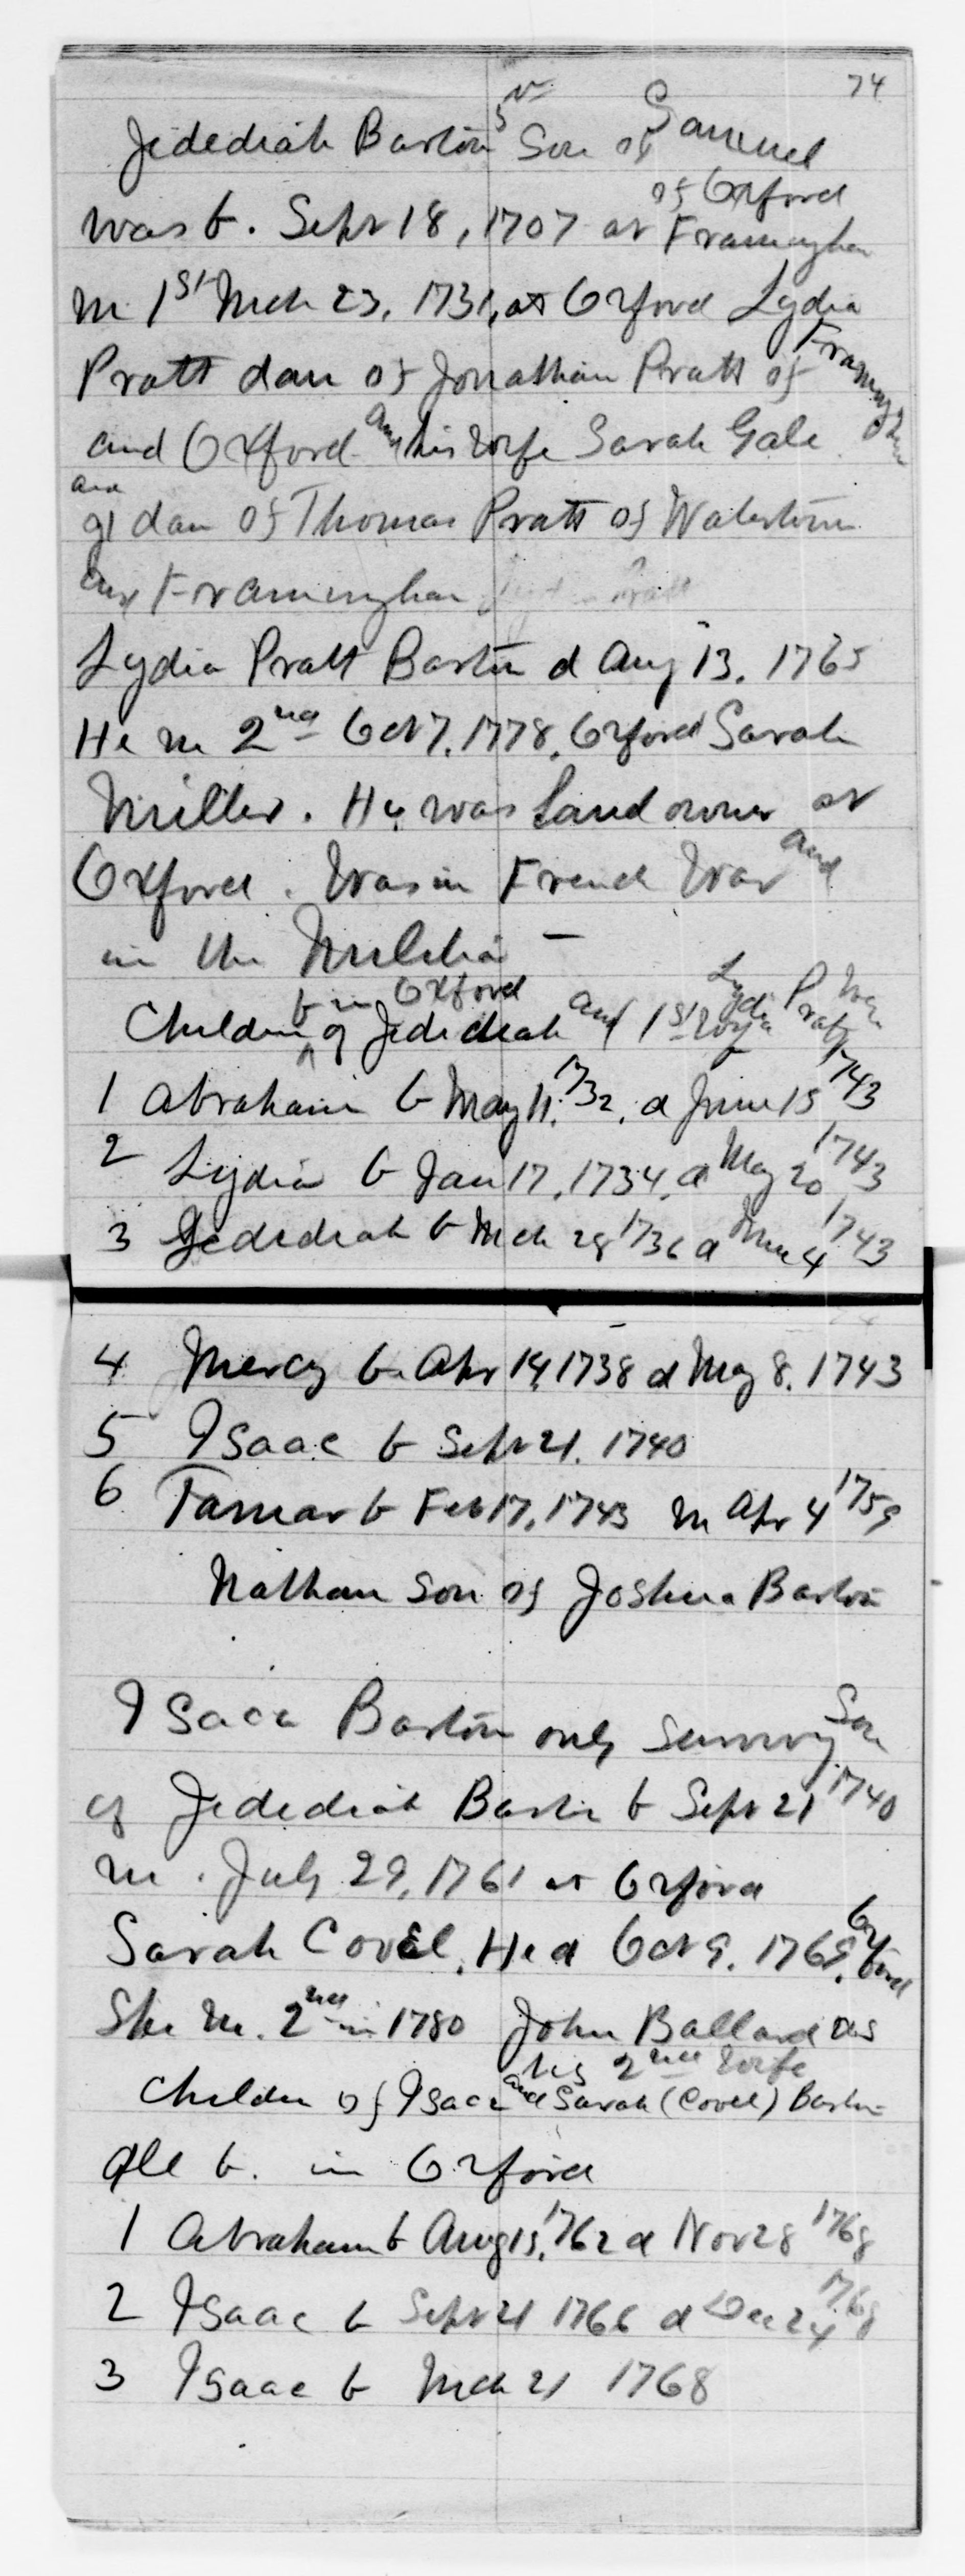 74
Jedediah Barton 5th Son of Samuel
of Oxford
was b. Sept 18, 1707 at Framingham
m 1st Mch 23, 1731, at Oxford Lydia
Pratt dau of Jonathan Pratt of Framingham
and Oxford and his wife Sarah Gale
and
gd dau of Thomas Pratt of Watertown
and Framingham
Lydia Pratt Barton d Aug 13, 1765
He m 2nd Oct 7, 1778, Oxford Sarah
Miller. He was Land owner at
Oxford. Was in French War and
in the Militia —
b in Oxford
Children of Jedediah and 1st wife Lydia Pratt
1 Abraham b May 11, 1732, d June 15 1743
2 Lydia b Jan 17, 1734, d May 20 1743
3 Jedediah b Mch 28 1736 d June 4 1743
4 Mercy b Apr 14, 1738 d May 8, 1743
5 Isaac b Sept 21, 1740
6 Tamar b Feb 17, 1743 m Apr 4 1759
Nathan son of Joshua Barton
Isaac Barton only Surviv Son
of Jedediah Barton b Sept 21 1740
m. July 29, 1761 at Oxford
Sarah Covel. He d Oct 9, 1769, Oxford
She m. 2nd in 1780 John Ballard as
his 2nd wife
Children of Isaac and Sarah (Covel) Barton
all b. in Oxford
1 Abraham b Aug 15, 1762 d Nov 28 1768
2 Isaac b Sept 21 1766 d Dec 24 1768
3 Isaac b Mch 21 1768